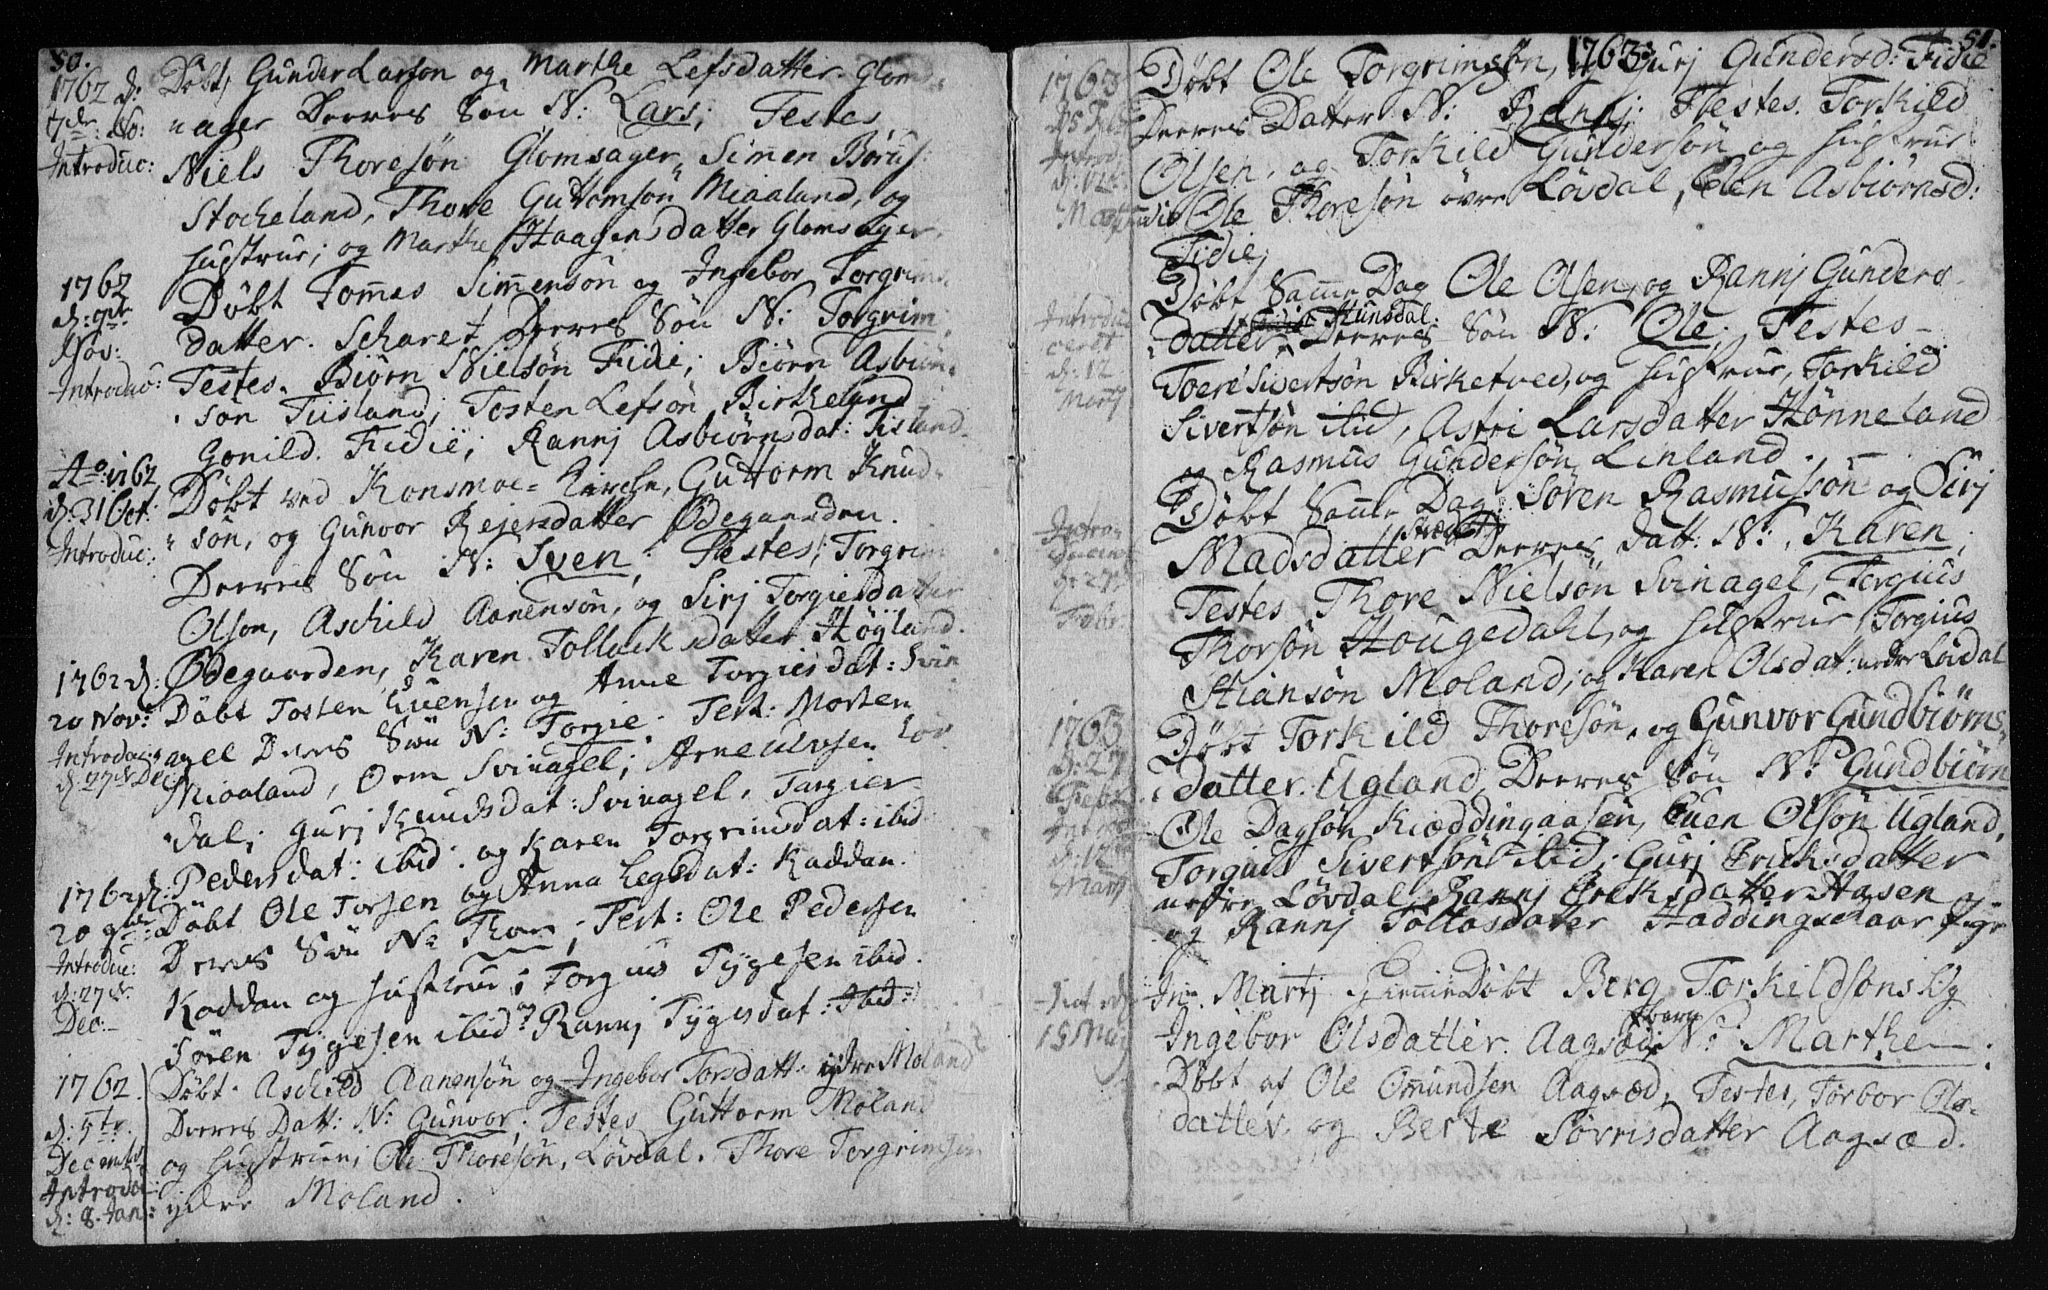 50.
1762 d:
7de No:
Introduc:
Døbt, Gunder Larson og Marthe Lefsdatter Gloms
nager Derres Søn N: Lars; Testes
Niels Thoresøn Glomsager, Simen Børus:
Stocheland, Thore Guttomson Miaaland, og
hustrue; og Marthe Haagensdatter Glomsager.
1762
Nov:
Introduc:
Døbt Tommes Simmensøn og Ingebor Torgrims
datter. Scharet Derres Søn N: Torgrim
Testes. Biørn Nielsøn Fidie; Biørn Asbiørn
son Tusland; Tosten Lefsøn Birkeland
Gonild Fidie; Rannj Asbiørnsdat: Tisland
Ao 1762
d: 31 Oct:
Introduc:
Døbt ved Konsmoe Kirche, Guttorm Knud
søn, og Gunvor Rejersdatter Ødegaarden.
Derres Søn N: Sven; Testes; Torgrim
Olson, Aschild Aanensøn, og Sirj Torgiersdatter
Ødegaarden, Karen Tollacksdatter Høyland.
1762 d:
20 Nov:
Introduc:
d: 27 de Dec
Døbt Tosten Evensen og Anne Torgiersdat: Svin
agel Derres Søn N: Torgie. Test: Morten
Miaaland, Orm Svinagel; Arne Løv
dal; Gurj Knudsdat: Svinagel, Targier
Pedersdat: ibid: og Karen Torgrimsdat: ibid
1762 d:
20
Introduc:
d: 27 de
Dec:
Døbt Ole Torsen og Anna Legsdat: Kaddan.
Derres Søn N: Thore; Test: Ole Pedersen
Kaddan og hustrue; Torgius Tygesen ibid.
Søren Tygesen ibid: og Rannj Tygesdat: Ibid:
1762.
d: 5te
Decembr
Introduc:
d: 8. Jan:
Døbt Aschild Aanensøn og Ingebor Torsdatt: ydre Moland
Derres Datt: N: Gunvor; Testes Guttorm Moland
og hustrue; Ole Thoresøn, Løvdal. Thore Torgrimsen
ydre Moland.
51.
1763:
1763
Introd:
Døbt Ole Torgrimsøn, og Gurj Gundersd: Fidie
Derres Datter N: Rannj: Testes. Torkild
Olsen, og Torkild Gundersøn og hustrue
Fidie Ole Thoresøn øvre Løvdal, Elen Asbiørnsd:
Fidie;
Introdu
ceret
d: 12
Martj
Døbt Samme Dag Ole Olsen, og Rannj Gunders
Hunsdal.
datter, Derres Søn N: Ole; Testes
Toere Sivertsøn Birketved, og hustrue, Torkild
Sivertsøn ibid, Astri Larsdatter Hønneland
og Rasmus Gundersøn Linland.
Intro
ducent
d: 27
Febr.
Døbt Samme Dag Søren Rasmussøn og Sirj
Madsdatter Derres datt: N: Karen;
Testes Thore Nielsøn Svinagel, Torgius
Thorsøn Hougedahl, og hustrue Torgius
Stiansøn Moland; og Karen Olsdat: nedre Løvdal
1763
d: 27
Febr
Intro
d: 12
Martj
Døbt Torkild Thoresøn, og Gunvor Gundbiørns
datter. Ugland. Derres Søn N: Gundbiørn
Ole Dagsøn Kiæddingaasen, Even Olsøn Ugland,
Torgius Sivertsøn ibid; Gurj Eriksdatter
nedre Løvdal, Rannj Eriksdatter Aasen
og Rannj Tollagsdatter Haddingschaar Pige
Int d:
15 Maj
In Martj Hiemme Døbt Berg Torkildsøns og
Ingebor Olsdatter. Aagsæd N: Marthe.
Døbt af Ole Omundsen Aagsæd, Testes, Torbor Ols-
datter og Berte Sørrisdatter Aagsæd.